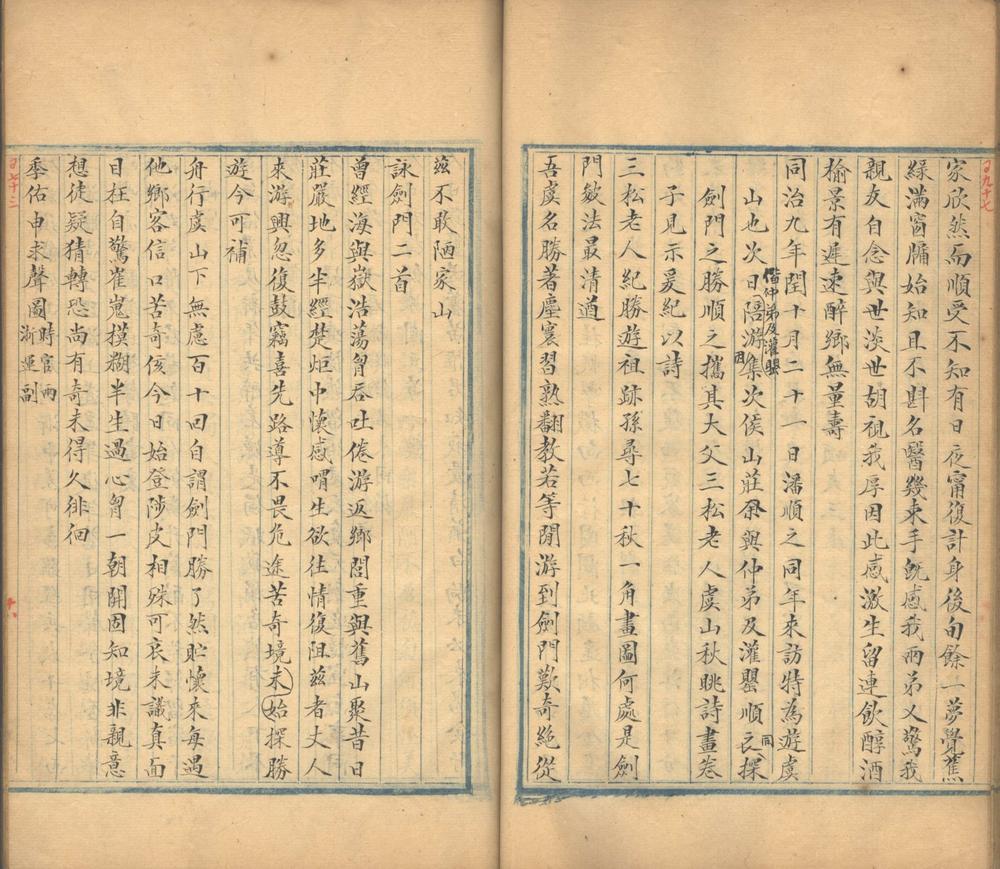 家欣然而順受不知有日夜甯復計身後旬餘一夢覺蕉
綠滿窗牖始知且不斟名醫幾束手既感我兩弟又驚我
親友自念與世淡世胡視我厚因此感激生留連飲醇酒
榆景有遲速醉鄉無量壽
同治九年閏十月二十一日潘順之同年來訪特為遊虞
山也次日陪游集次侯山莊余與仲弟及灌罌順之探
偕仲弟及灌罌
同
劍門之勝順之攜其大父三松老人虞山秋眺詩畫卷
子見示爰紀以詩
三松老人紀勝遊祖跡孫尋七十秋一角畫圖何處是劍
門皴法最清遒
吾虞名勝著塵寰習熟翻教若等閒游到劍門歎奇絕從
茲不敢陋家山
詠劍門二首
曾經海與嶽浩蕩胷吞吐倦游返鄉閭重與舊山聚昔日
莊嚴地多半經楚炬中懷感喟生欲往情復阻茲者丈人
來游興忽復鼓竊喜先路導不畏危途苦奇境未始探勝
遊今可補
舟行虞山下無慮百十回自謂劍門勝了然貯懷來每遇
他鄉客信口苦奇侅今日始登陟皮相殊可哀未識真面
目枉自驚崔嵬摸糊半生過心胷一朝開固知境非親意
想徒疑猜轉恐尚有奇未得久徘徊
季佑申求聲圖
時官兩
浙運副